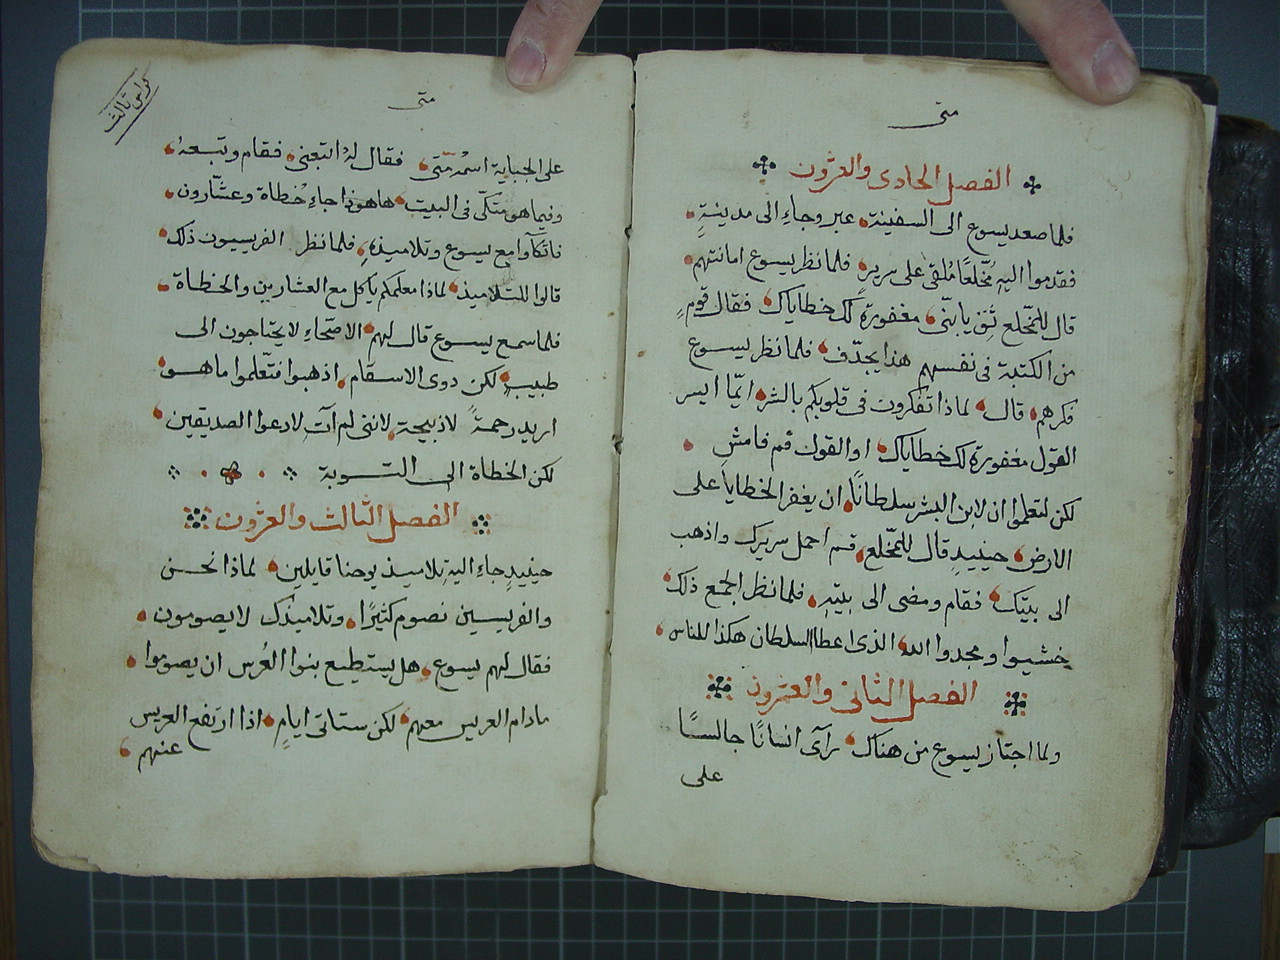 متى
الفصل الحادى والعشرون
فلما صعد يسوع الى السفينة، عبر وجاء الى مدينتهِ،
فقدموا اليهِ مُخلعًا مُلقى على سريرٍ، فلما نظر يسوع امانتهم،
قال للمخّلع ثِق يا بنّى، مغفورة لك خطاياك، فقال قومٍ
من الكتبة فى نفسهم هذا يجدّف، فلما نظر يسوع
فكرهم، قال، لماذا تفكرون فى قلوبكم بالشر، ايّما ايسر
القول مغفورة لك خطاياك، او القول قم فامشِ،
لكن لتعلموا ان لابن البشر سلطانًا، ان يغفر الخطايا على
الارض، حينيدٍ قال للمخّلع، قم احمل سريرك واذهب
الى بيتك، فقام ومضى الى بيتهِ، فلما نظر الجمع ذلك،
خشيوا ومجدوا الله، الذى اعطا السلطان هكذا للناس،
الفصل الثانى والعشرون
ولما اجتاز يسوع من هناك، رآى انسانًا جالسًا
على
كراس ثالث
متى
على الجباية اسمهُ متّى، فقال لهُ اتبعنى، فقام وتبعهُ،
وفيما هو متكّى فى البيت، هاهوذا جاءِ خُطاة وعشّارون،
فاتكآوا مع يسوع وتلاميذهِ، فلما نظر الفريسيون ذلك،
قالوا للتلاميذ، لماذا معلمكم ياكل مع العشارين والخطاة،
فلما سمع يسوع قال لهم، الاصّحاءِ لا يحتاجون الى
طبيب، لكن ذوى الاسقام، اذهبوا فتعّلموا ما هو،
اريد رحمةً لا ذبيحة، لاننى لم آتِ لادعوا الصديقين،
لكن الخطاة الى التوبة
الفصل الثالث والعشرون
حينيدٍ جاء اليهِ تلاميذ يوحنا قايلين، لماذا نحن
والفريسيين نصوم كثيرًا، وتلاميذك لا يصومون،
فقال لهم يسوع، هل يستطيع بنوا العُرس ان يصوموا،
مادام العريس معهم، لكن ستاتى ايامٍ، اذا ارتفع العريس
عنهم،